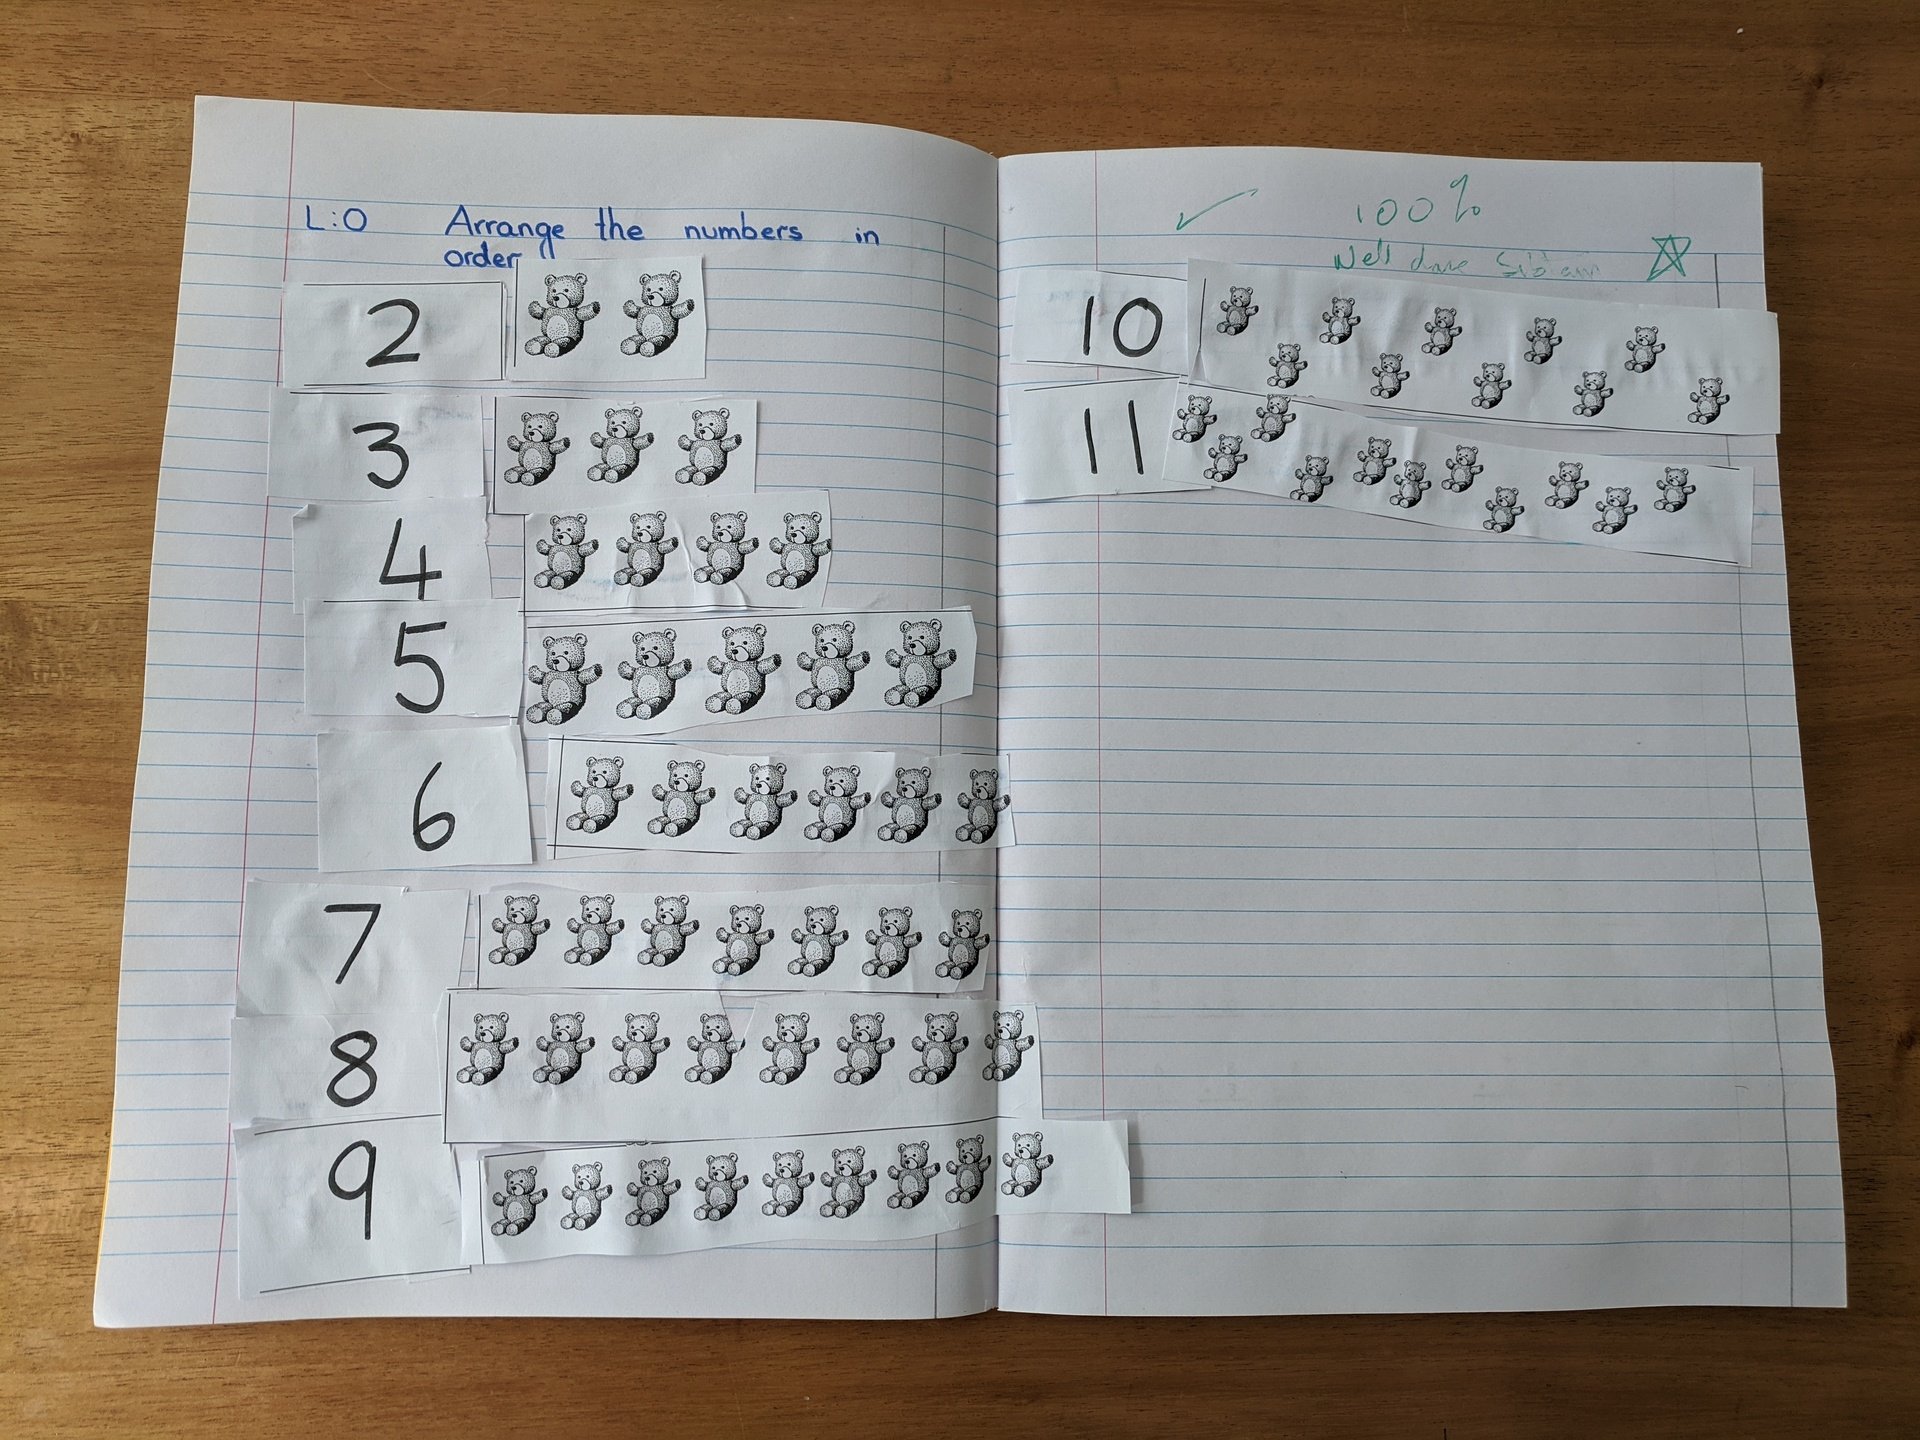 L:O Arrange the numbers in
order
2
3
4
5
6
7
8
9
✓ 100%
Well done
10
11